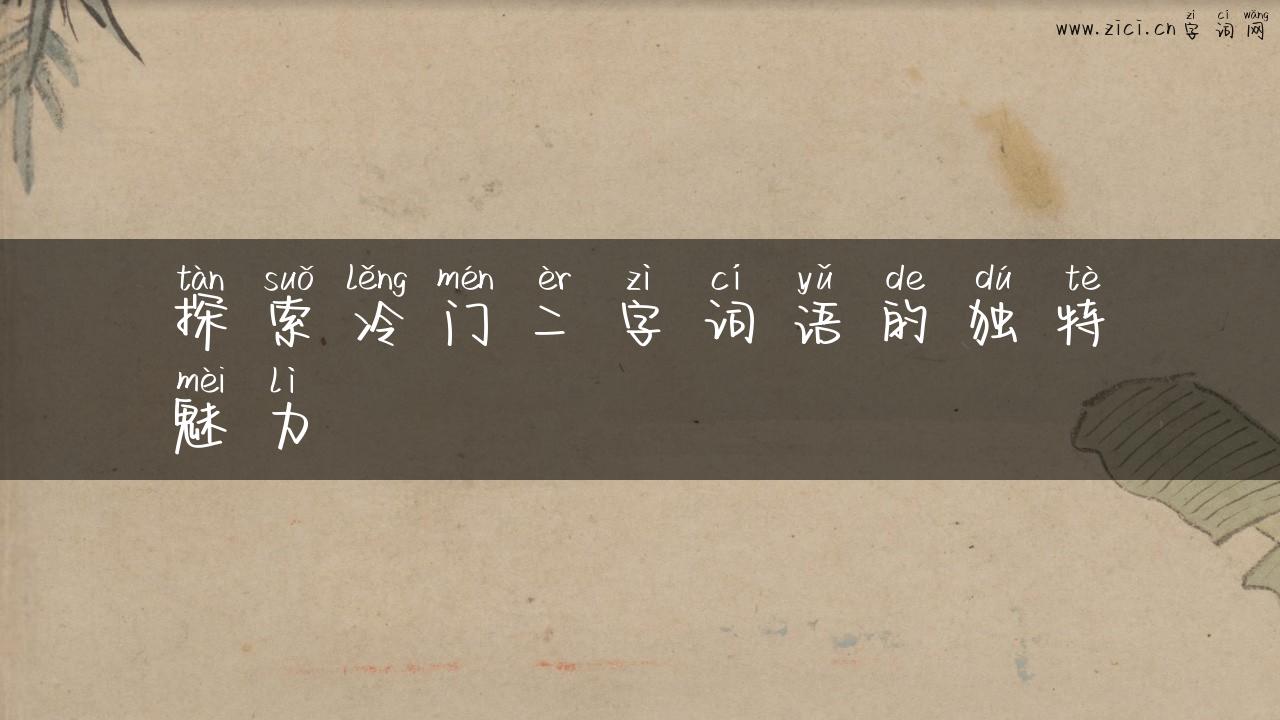 zì cí wǎng
www.zici.cn 字词网
tàn suǒ lěng mén èr zì cí yǔ de dú tè
探索冷门二字词语的独特
mèi lì
魅力